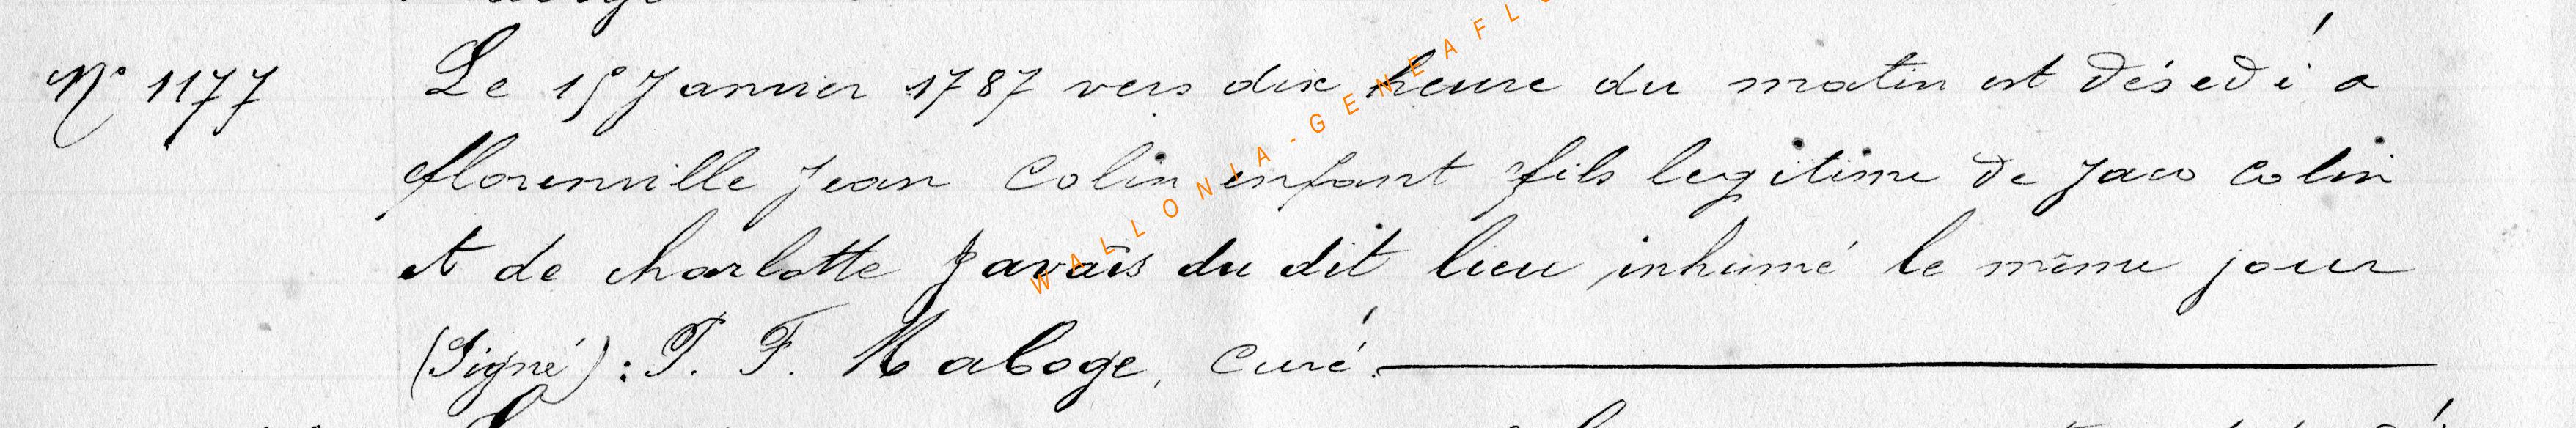 N° 1177 Le 15 Janvier 1787 vers dix heure du matin est désedé a
florenville Jean Colin enfant fils legitime de Jaco Colin
et de charlotte Javais du dit lieu inhumé le même jour
(Signé) : P. F. Maboge, Curé.
WALLONIA-GENEAFLO